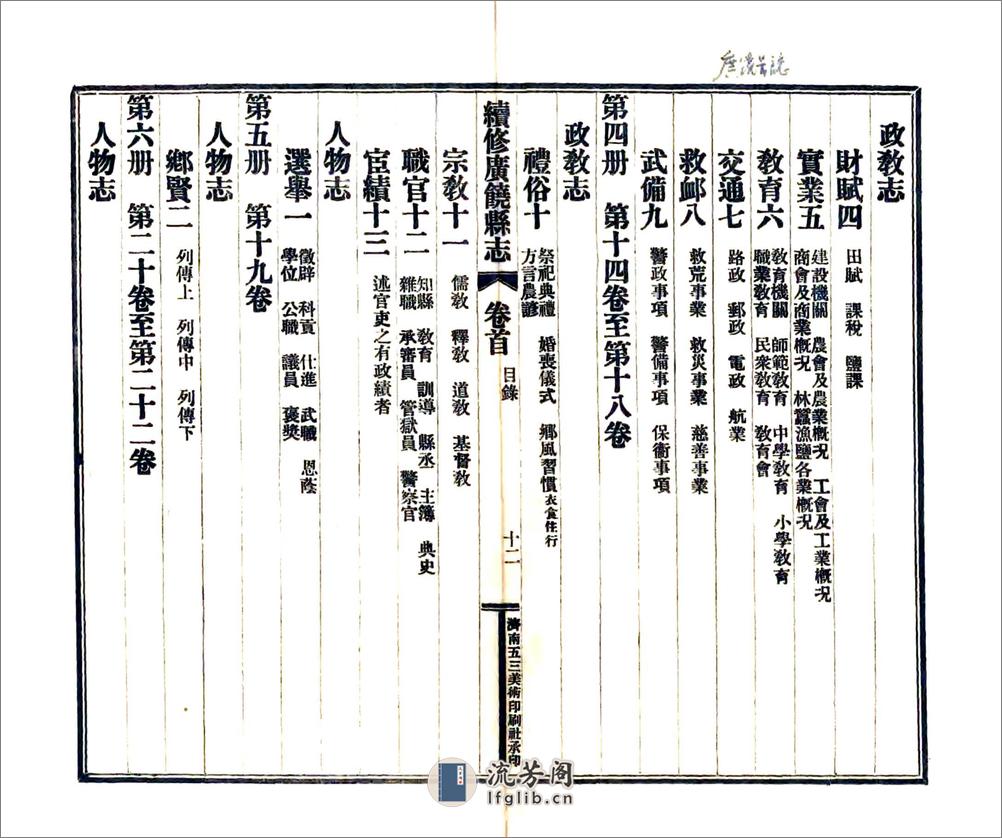 政教志
財賦四　田賦　課稅　鹽課
實業五　建設機關　農會及農業概况　工會及工業概况
商會及商業概况　林蠶漁鹽各業概况
教育六　教育機關　師範教育　中學教育　小學教育
職業教育　民衆教育　教育會
交通七　路政　郵政　電政　航業
救卹八　救荒事業　救災事業　慈善事業
武備九　警政事項　警備事項　保衞事項
第四册　第十四卷至第十八卷
政教志
禮俗十　祭祀典禮　婚喪儀式　鄉風習慣衣食住行
方言農諺
續修廣饒縣志　卷首　目錄　十二　濟南五三美術印刷社承印
宗教十一　儒教　釋教　道教　基督教
職官十二　知縣　教育　訓導　縣丞　主簿　典史
雜職　承審員　管獄員　警察官
宦績十三　述官吏之有政績者
人物志
選舉一　徵辟　科貢　仕進　武職　恩蔭
學位　公職　議員　褒獎
第五册　第十九卷
人物志
鄉賢二　列傳上　列傳中　列傳下
第六册　第二十卷至第二十二卷
人物志
流芳阁
lfglib.cn